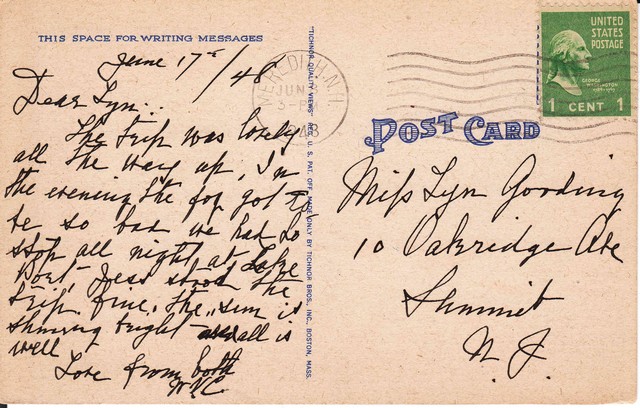 THIS SPACE FOR WRITING MESSAGES
June 17th/48
Dear Lyn..
The trip was lovely
all the way up, In
the evening the fog got to
be so bad we had to
stop all night at Lake
Port, Jess stood the
trip fine. The sun is
shining bright all is
well
Love from both
"TICHNOR QUALITY VIEWS" REG. U. S. PAT. OFF. MADE ONLY BY TICHNOR BROS., INC., BOSTON, MASS.
MEREDITH, N.H.
JUN
3-P
48
UNITED
STATES
POSTAGE
GEORGE
WASHINGTON
1 CENT 1
POST CARD
Miss Lyn Gooding
10 Oakridge Ave
Summit
N. J.